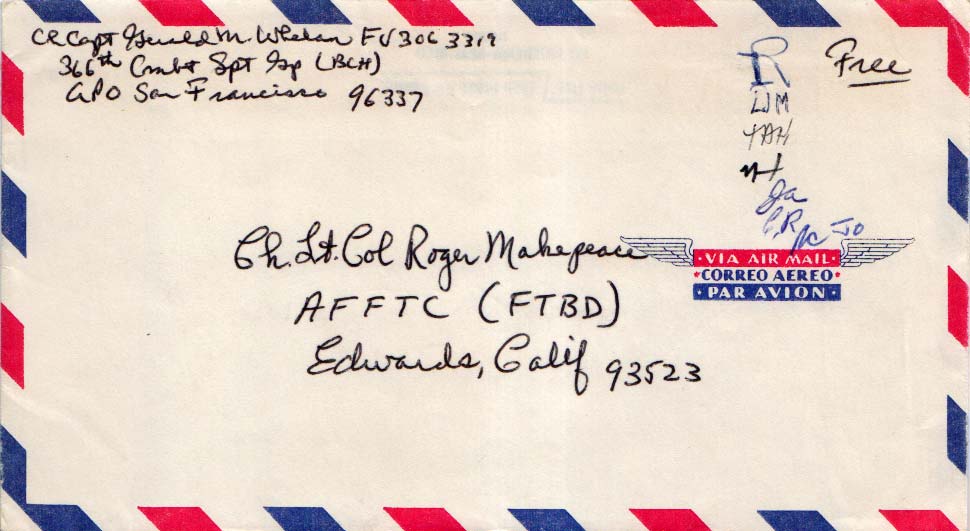 Ch Capt Gerald M. Whelan FV 306 3319
366th Combt Spt Gp (BCH)
APO San Francisco 96337
Free
R
WM
Ch. Lt. Col Roger Makepeace
AFFTC (FTBD)
Edwards, Calif 93523
· VIA AIR MAIL ·
* CORREO AEREO *
· PAR AVION ·